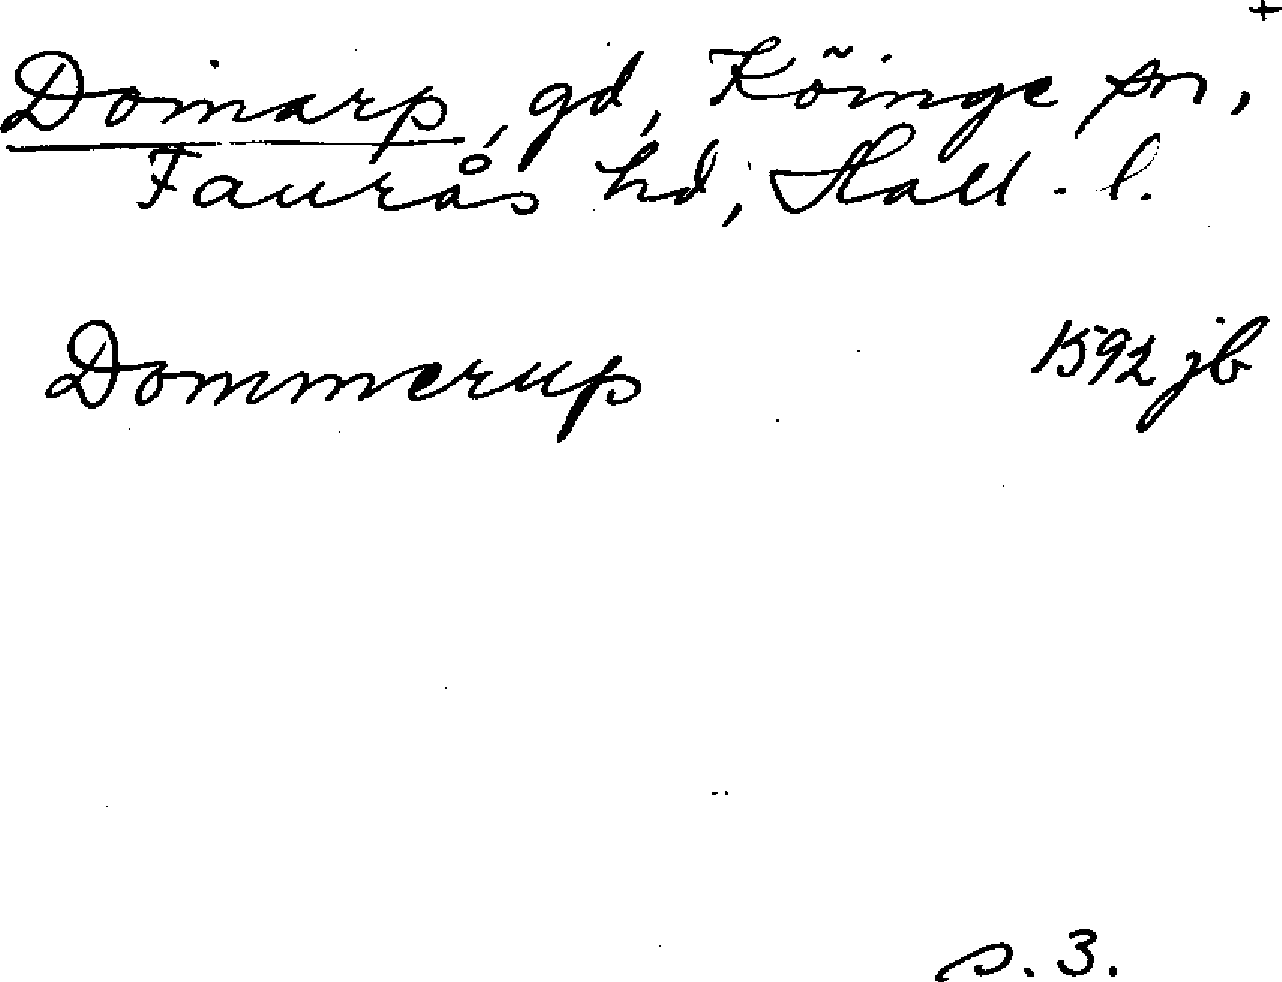 +
Domarp, gd, Köinge sn,
Faurås hd, Hall. l.
Dommerup 1592 jb
s. 3.